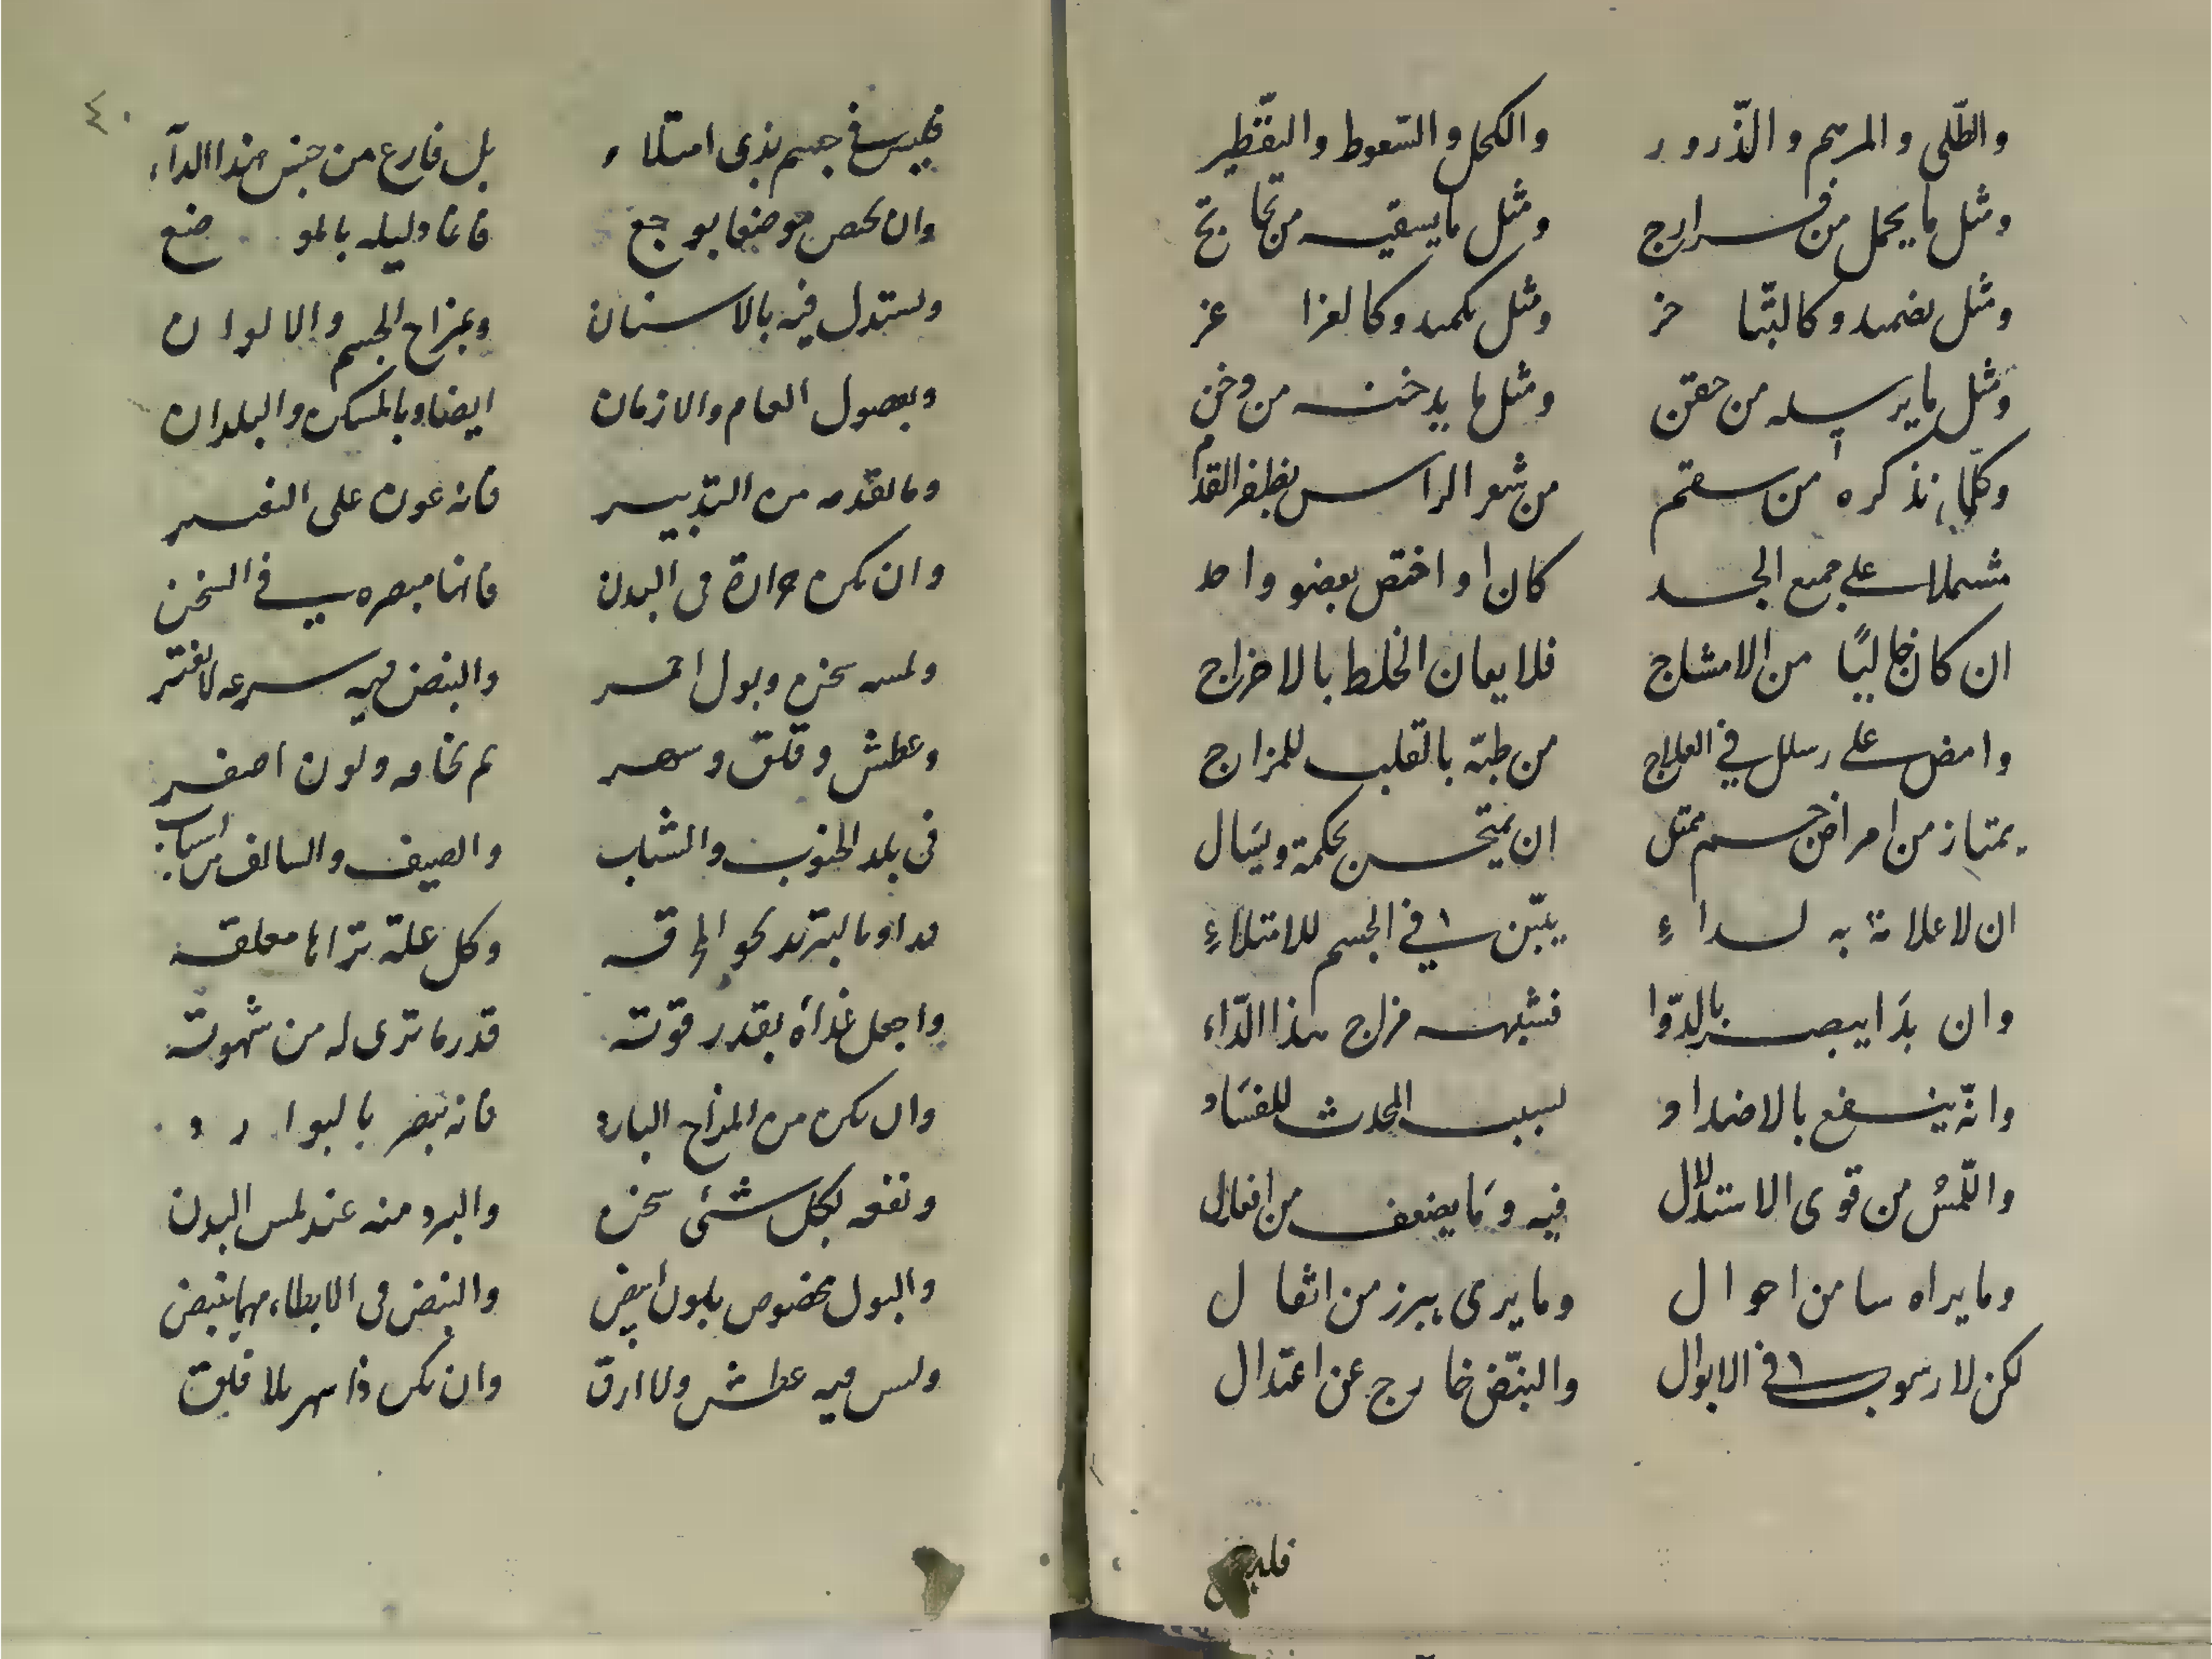 والطّلى والمرهم والذّرور والكحل والسّعوط والتقطير
ومثل ما يحمل من فرازج ومثل ما يسقيه من
ومثل تضميد وكالتبّا خر ومثل تكميد وكالغرا غر
ومثل ما يرسله من حقن ومثل ما يدخنه من دخن
وكلّما نذكره من سقم من شعر الراس بظفر القدم
مشتملا على جميع الجسد كان او اختص بعضو واحد
ان كان خاليًا من الامشاج فلا يعان الخلط بالاخراج
وامض على رسلك في العلاج من طبّه بالقلب للمزاج
يمتاز من امراض جسم ممتل ان يمتحن بحكمة ويسَال
ان لا علامة به لداءِ يبيّن في الجسم للامتلاءِ
وان بدَا يبصر بالدّوا فشبهه مزاج هذا الدّاء
وانّه ينفع بالاضداد لسبب المحدث للفسَاد
واللّمسُ من قوى الاستدلال فيه ومَا يضعف من افعال
وما يراه سا من احوال وما يرى يبرز من اثقال
لكن لا رسوب في الابوال والنبّض خارج عن اعتدال
فليس
٤٠
فليس في جسم بذي امتلاء بل فارغ من جنس هذا الداء
وان يخص موضعا بوجع فانما دليله بالموضع
ويستدل فيه بالاسنان وبمزاج الجسم والالوان
وبفصول العام والازمان ايضا وبالمسكن والبلدان
وما تقدمه من التدبير فانه عون على التفسير
وان تكن حرارة في البدن فانما مبصره في السخن
ولمسه سخن وبول احمر والنبض فيه سرعه لا تفتر
وعطش وقلق وسهر ثم نحافه ولون اصفر
في بلد الجنوب والشباب والصيف والسالف من اسباب
فداو بالتبريد نحو الحرقه وكل علة تراها معلقه
واجعل غذاه بقدر قوته قدر ما ترى له من شهوته
وان تكن من المزاج البارد فانه يضر بالبوارد
ونفعه بكل شئ سخن والبرد منه عند لمس البدن
والبول مخصوص بلون ابيض والنبض في الابطاء مهما ينبض
وليس فيه عطش ولا ارق وان تكن ذا سهر بلا قلق